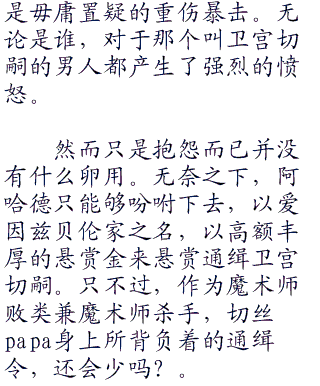 是毋庸置疑的重伤暴击。无
论是谁，对于那个叫卫宫切
嗣的男人都产生了强烈的愤
怒。
然而只是抱怨而已并没
有什么卵用。无奈之下，阿
哈德只能够吩咐下去，以爱
因兹贝伦家之名，以高额丰
厚的悬赏金来悬赏通缉卫宫
切嗣。只不过，作为魔术师
败类兼魔术师杀手，切丝
papa身上所背负着的通缉
令，还会少吗？。